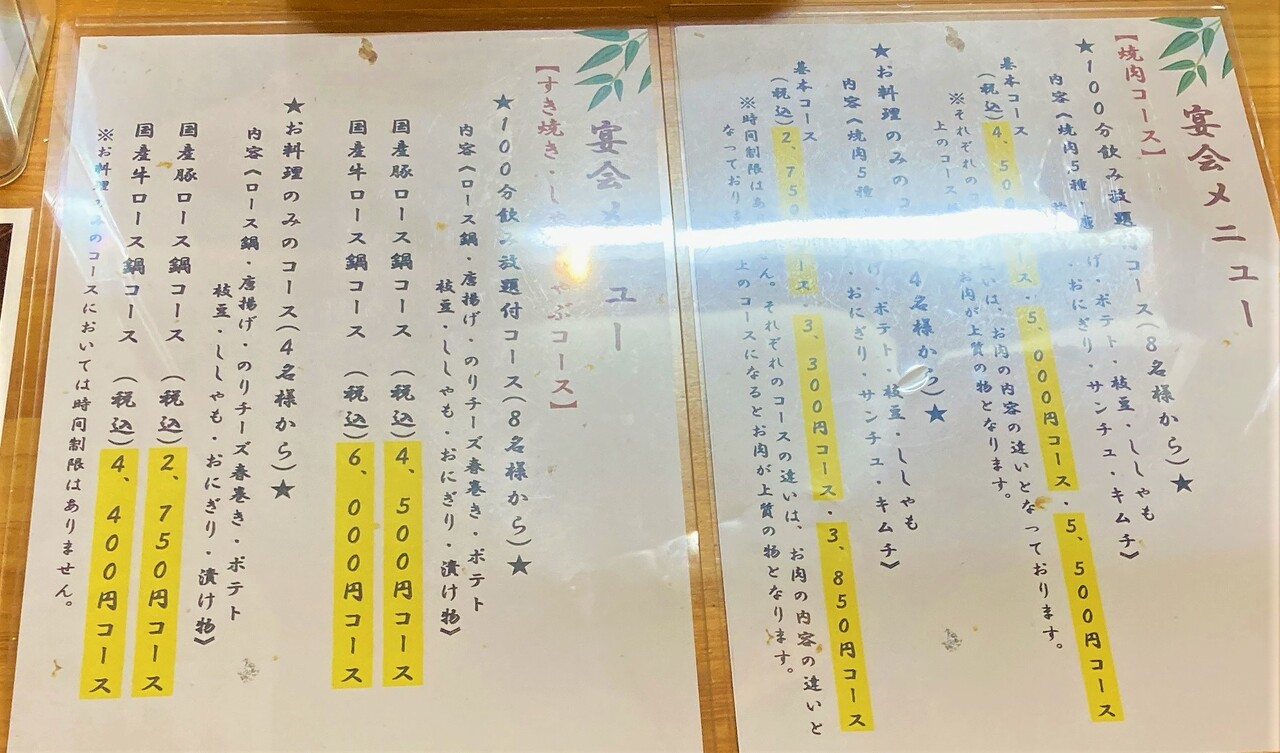 宴会メニュー
【焼肉コース】
★100分飲み放題付コース(8名様から)★
内容《焼肉5種・唐揚げ・ポテト・枝豆・ししゃも
おにぎり・サンチュ・キムチ》
基本コース
(税込)4、500円コース・5、000円コース・5、500円コース
※それぞれのコースの違いは、お肉の内容の違いとなっております。
上のコース お肉が上質の物となります。
★お料理のみのコ 4名様から)★
内容《焼肉5種 げ・ポテト・枝豆・ししゃも
・おにぎり・サンチュ・キムチ》
基本コース
(税込)2、750円コース 3、300円コース・3、850円コース
※時間制限はあ ん。それぞれのコースの違いは、お肉の内容の違いと
なっておりま 上のコースになるとお肉が上質の物となります。
宴会メニュー
【すき焼き・しゃぶしゃぶコース】
★100分飲み放題付コース(8名様から)★
内容《ロース鍋・唐揚げ・のりチーズ春巻き・ポテト
枝豆・ししゃも・おにぎり・漬け物》
国産豚ロース鍋コース (税込)4、500円コース
国産牛ロース鍋コース (税込)6、000円コース
★お料理のみのコース(4名様から)★
内容《ロース鍋・唐揚げ・のりチーズ春巻き・ポテト
枝豆・ししゃも・おにぎり・漬け物》
国産豚ロース鍋コース (税込)2、750円コース
国産牛ロース鍋コース (税込)4、400円コース
※お料理のみのコースにおいては時間制限はありません。